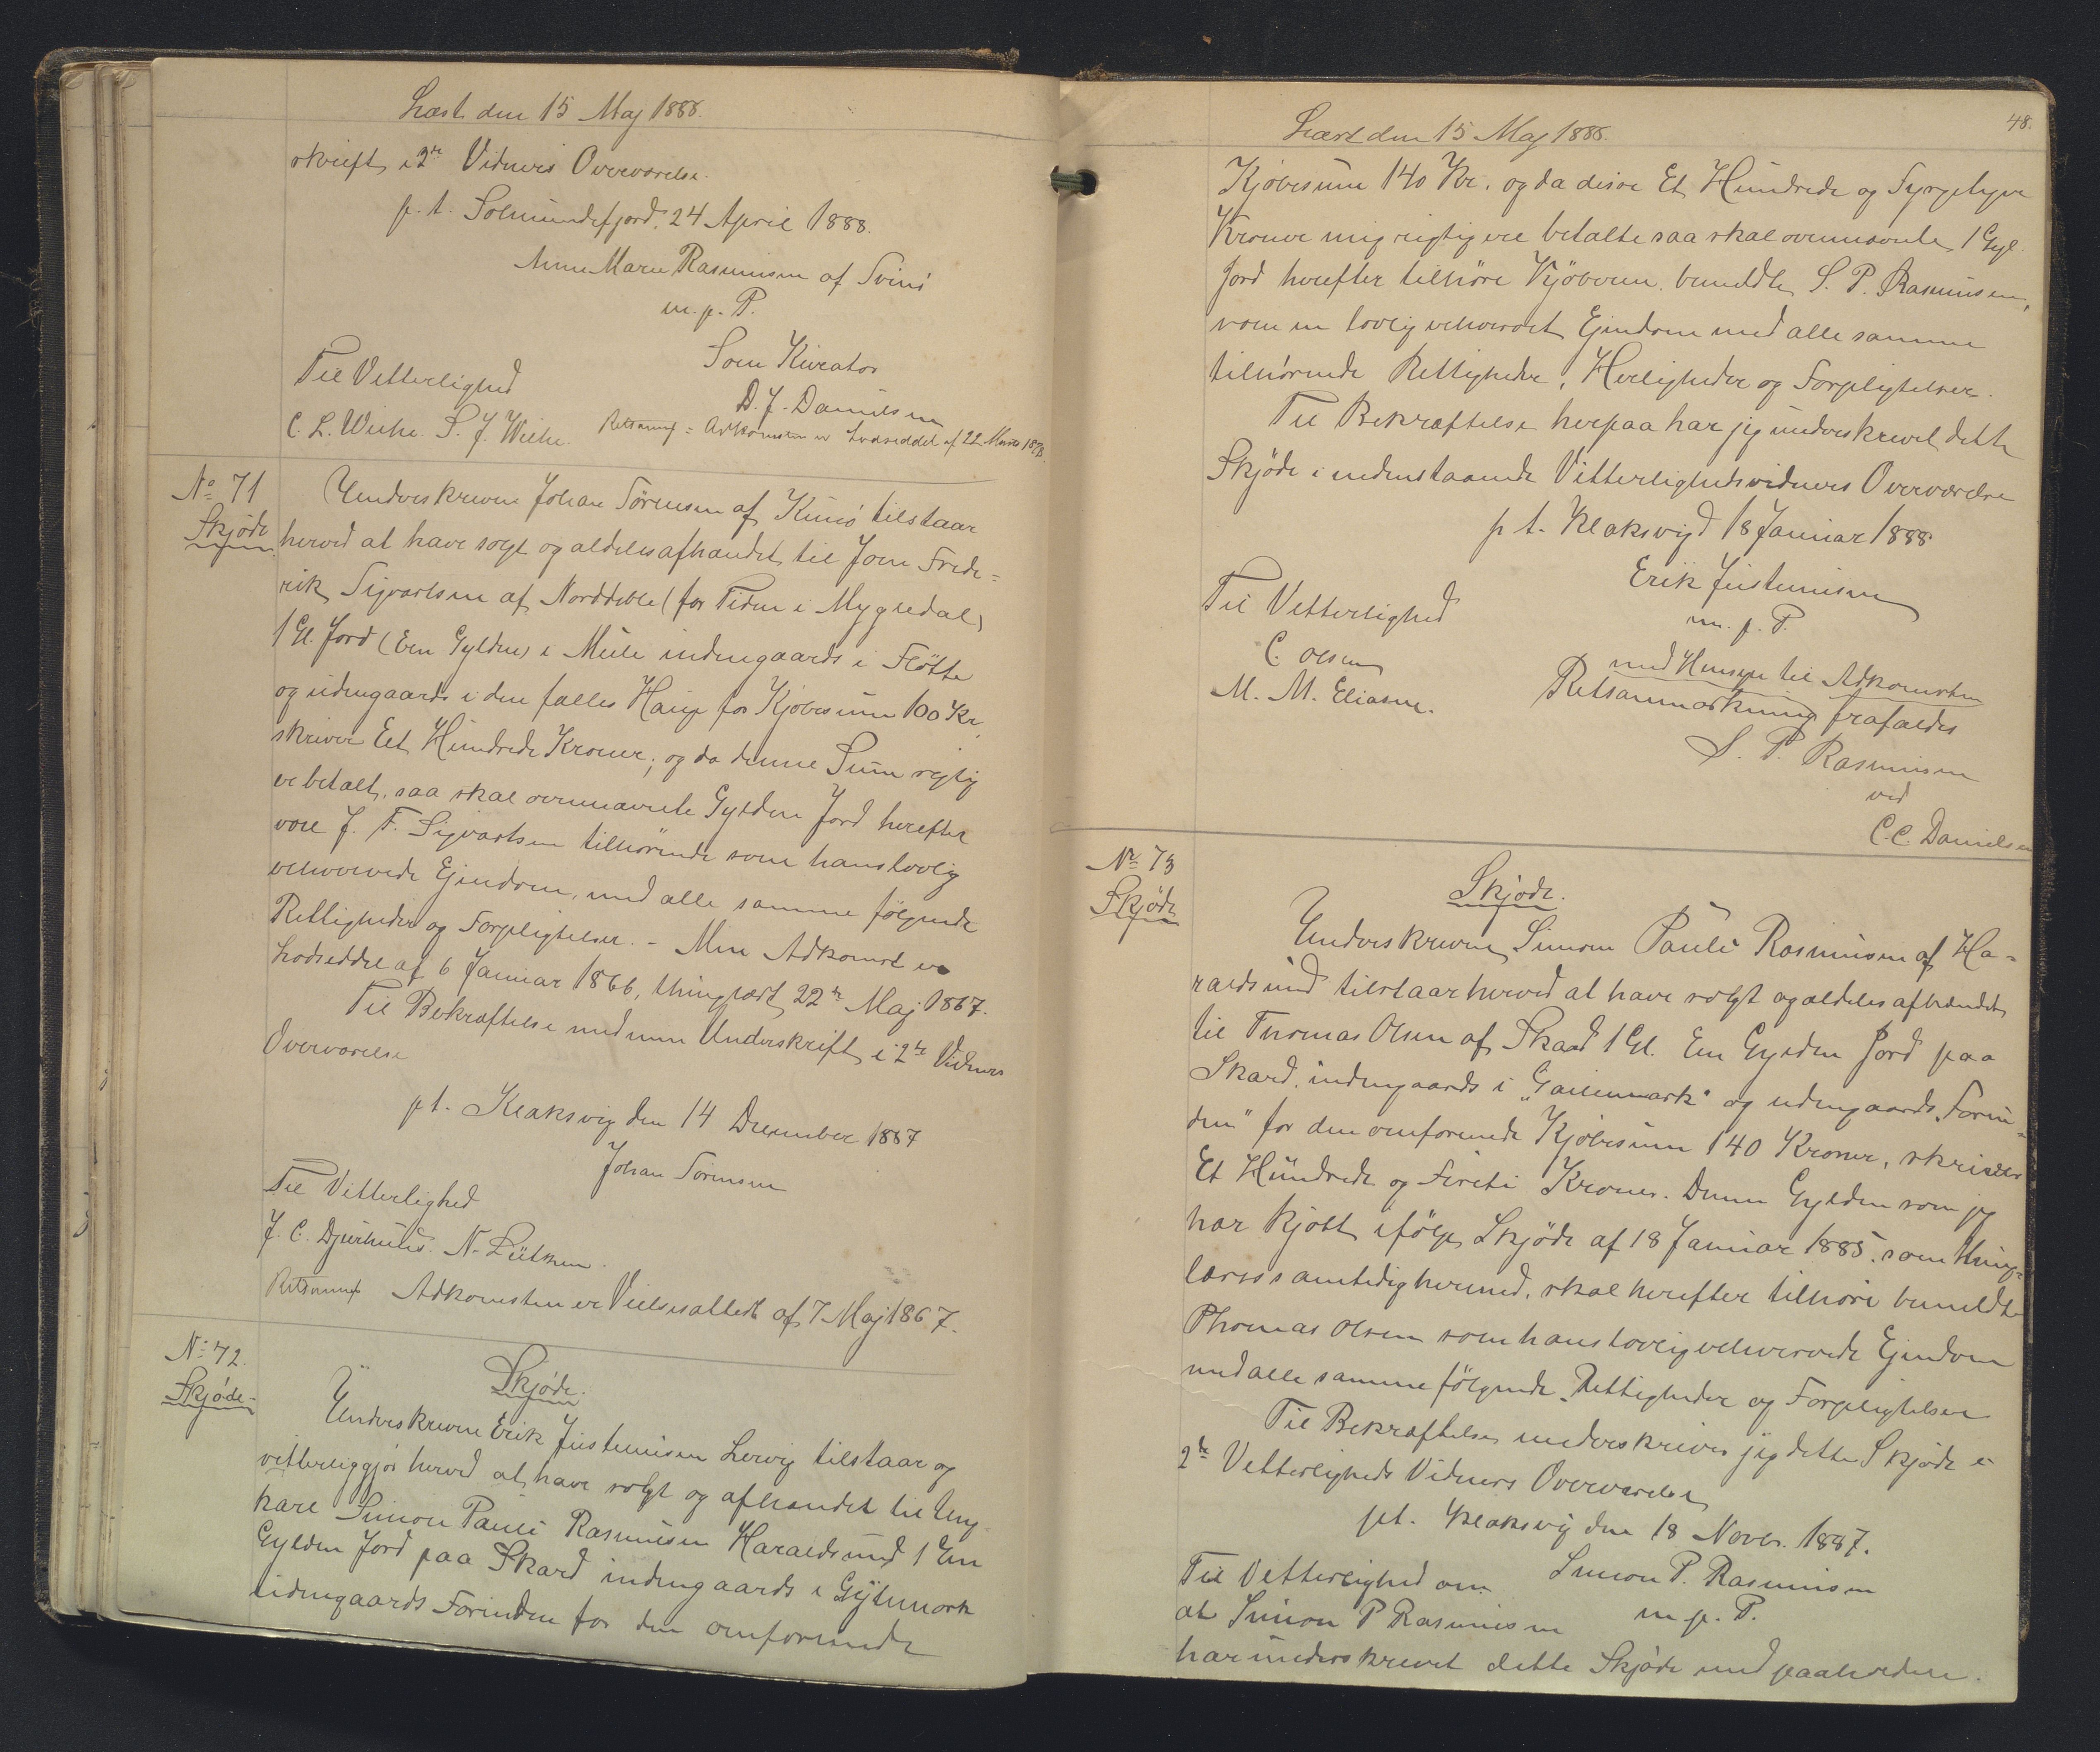 Læst den 15 Maj 1888.
skrift i 2de Vidners Overværelse.
p. t. Solmundefjord, 24 April 1888.
Anne Marie Rasmussen af Svinö
m. p. P.
Som Kurator
Til Vitterlighed
D. J. Danielsen
C. L. Weihe. S. J. Weihe.
Retsanm = Adkomsten er Lodseddel af 22 Marts
No 71
Skjöde
Underskrevne Johan Sörensen af Kunö tilstaar
herved at have solgt og aldeles afhændet til Joen Frede=
rik Sigvartsen af Norddeble (for Tiden i Mygledal)
1 Gl. Jord (Een Gylden) i Mule indengaards i Flötte
og udengaards i den fælles Hauge for Kjöbesum 100 Kr,
skriver Eet Hundrede Kroner; og da denne Sum rigtig
er betalt, saa skal ovennævnte Gylden Jord herefter
være J. F. Sigvartsen tilhörende som hans lovlig
velhvervede Ejendom, med alle samme fölgende
Rettigheder og Forpligtelser. - Min Adkomst er
Lodseddel af 6 Januar 1866, thinglæst 22de Maj 1867.
Til Bekræftelse med min Underskrift i 2de Vidners
Overværelse
p t. Klaksvig den 14 December 1887
Johan Sörensen
Til Vitterlighed
J. C. Djurhuus. N. Lützen.
Retsanm Adkomsten er Vielsesattest af 7 Maj 1867.
No 72.
Skjöde
Skjöde.
Underskrevne Erik Justinussen Lervig tilstaar og
vitterliggjör herved at have solgt og afhændet til Ung
karl Simon Pauli Rasmussen Haraldsund 1 Een
Gylden Jord paa Skard indengaards i Gejlmork
udengaards Forunden for den omforenede
48.
Læst den 15 Maj 1888.
Kjöbesum 140 Kr. og da disse Et Hundrede og Fyrgetyve
Kroner mig rigtig ere betalte saa skal ovennævnte 1 Gyl.
Jord herefter tilhöre Kjöberen bemeldte S. P. Rasmussen,
som en lovlig velhvervet Ejendom med alle samme
tilhörende Rettigheder, Herligheder og Forpligtelser.
Til Bekræftelse herpaa har jeg underskrevet dette
Skjöde i nedenstaaende Vitterlighedsvidners Overværelse
p t. Klaksvig 18 Januar 1888
Erik Justinussen
m. p. P.
Til Vitterlighed
C. Olsen
M. M. Eliasen.
med Hensyn til Adkomsten
Retsanmærkning frafaldes
S. P. Rasmussen
ved
C. C. Danielsen
No 73
Skjöde
Skjöde.
Underskrevne Simon Pauli Rasmussen af Ha=
raldsund tilstaar herved at have solgt og aldeles afhændet
til Thomas Olsen af Skaard 1 Gl. Een Gylden Jord paa
Skard, indengaards i "Gailenmark" og udengaards "Forun=
den" for den omforenede Kjöbesum 140 Kroner, skriver
Et Hundrede og Fireti Kroner. Denne Gylden som jeg
har kjöbt ifölge Skjöde af 18 Januar 1885, som thing=
læses samtidig hermed, skal herefter tilhöre bemeldte
Thomas Olsen som hans lovlig velhvervede Ejendom
med alle samme fölgende Rettigheder og Forpligtelser
Til Bekræftelse underskriver jeg dette Skjöde i
2de Vitterligheds Vidners Overværelse
p t. Klaksvig den 18 Novbr. 1887.
Simon P. Rasmussen
m. p. P.
Til Vitterlighed om
at Simon P Rasmussen
har underskrevet dette Skjöde med paaholden.